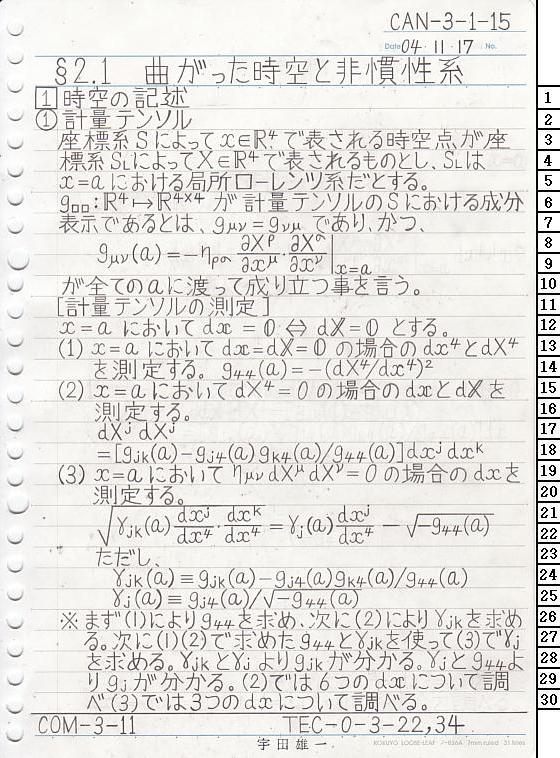 CAN-3-1-15
Date 04・11・17 No.
§2.1 曲がった時空と非慣性系
1 時空の記述
① 計量テンソル
座標系Sによってx∈ℝ⁴で表される時空点が座
標系S_LによってX∈ℝ⁴で表されるものとし、S_Lは
x=aにおける局所ローレンツ系だとする。
g□□:ℝ⁴↦ℝ⁴ˣ⁴が計量テンソルのSにおける成分
表示であるとは、g_μν=g_νμであり、かつ、
g_μν(a)=-η_ρσ ∂X^ρ/∂x^μ・∂X^σ/∂x^ν|_x=a
が全てのaに渡って成り立つ事を言う。
[計量テンソルの測定]
x=aにおいてdx=0⇔dX=0とする。
(1) x=aにおいてdx=dX=0の場合のdx⁴とdX⁴
を測定する。g₄₄(a)=-(dX⁴/dx⁴)²
(2) x=aにおいてdX⁴=0の場合のdxとdXを
測定する。
dX^j dX^j
=[g_jk(a)-g_j4(a)g_k4(a)/g₄₄(a)]dx^j dx^k
(3) x=aにおいてη_μν dX^μ dX^ν=0の場合のdxを
測定する。
√(γ_jk(a) dx^j/dx⁴・dx^k/dx⁴)=γ_j(a) dx^j/dx⁴-√(-g₄₄(a))
ただし、
γ_jk(a)≡g_jk(a)-g_j4(a)g_k4(a)/g₄₄(a)
γ_j(a)≡g_j4(a)/√(-g₄₄(a))
※まず(1)によりg₄₄を求め、次に(2)によりγ_jkを求め
る。次に(1)(2)で求めたg₄₄とγ_jkを使って(3)でγ_j
を求める。γ_jkとγ_jよりg_jkが分かる。γ_jとg₄₄よ
りg_jが分かる。(2)では6つのdxについて調
べ(3)では3つのdxについて調べる。
COM-3-11 TEC-0-3-22,34
宇田雄一 KOKUYO LOOSE-LEAF ノ-836A 7mm ruled 31 lines
1
2
3
4
5
6
7
8
9
10
11
12
13
14
15
16
17
18
19
20
21
22
23
24
25
26
27
28
29
30